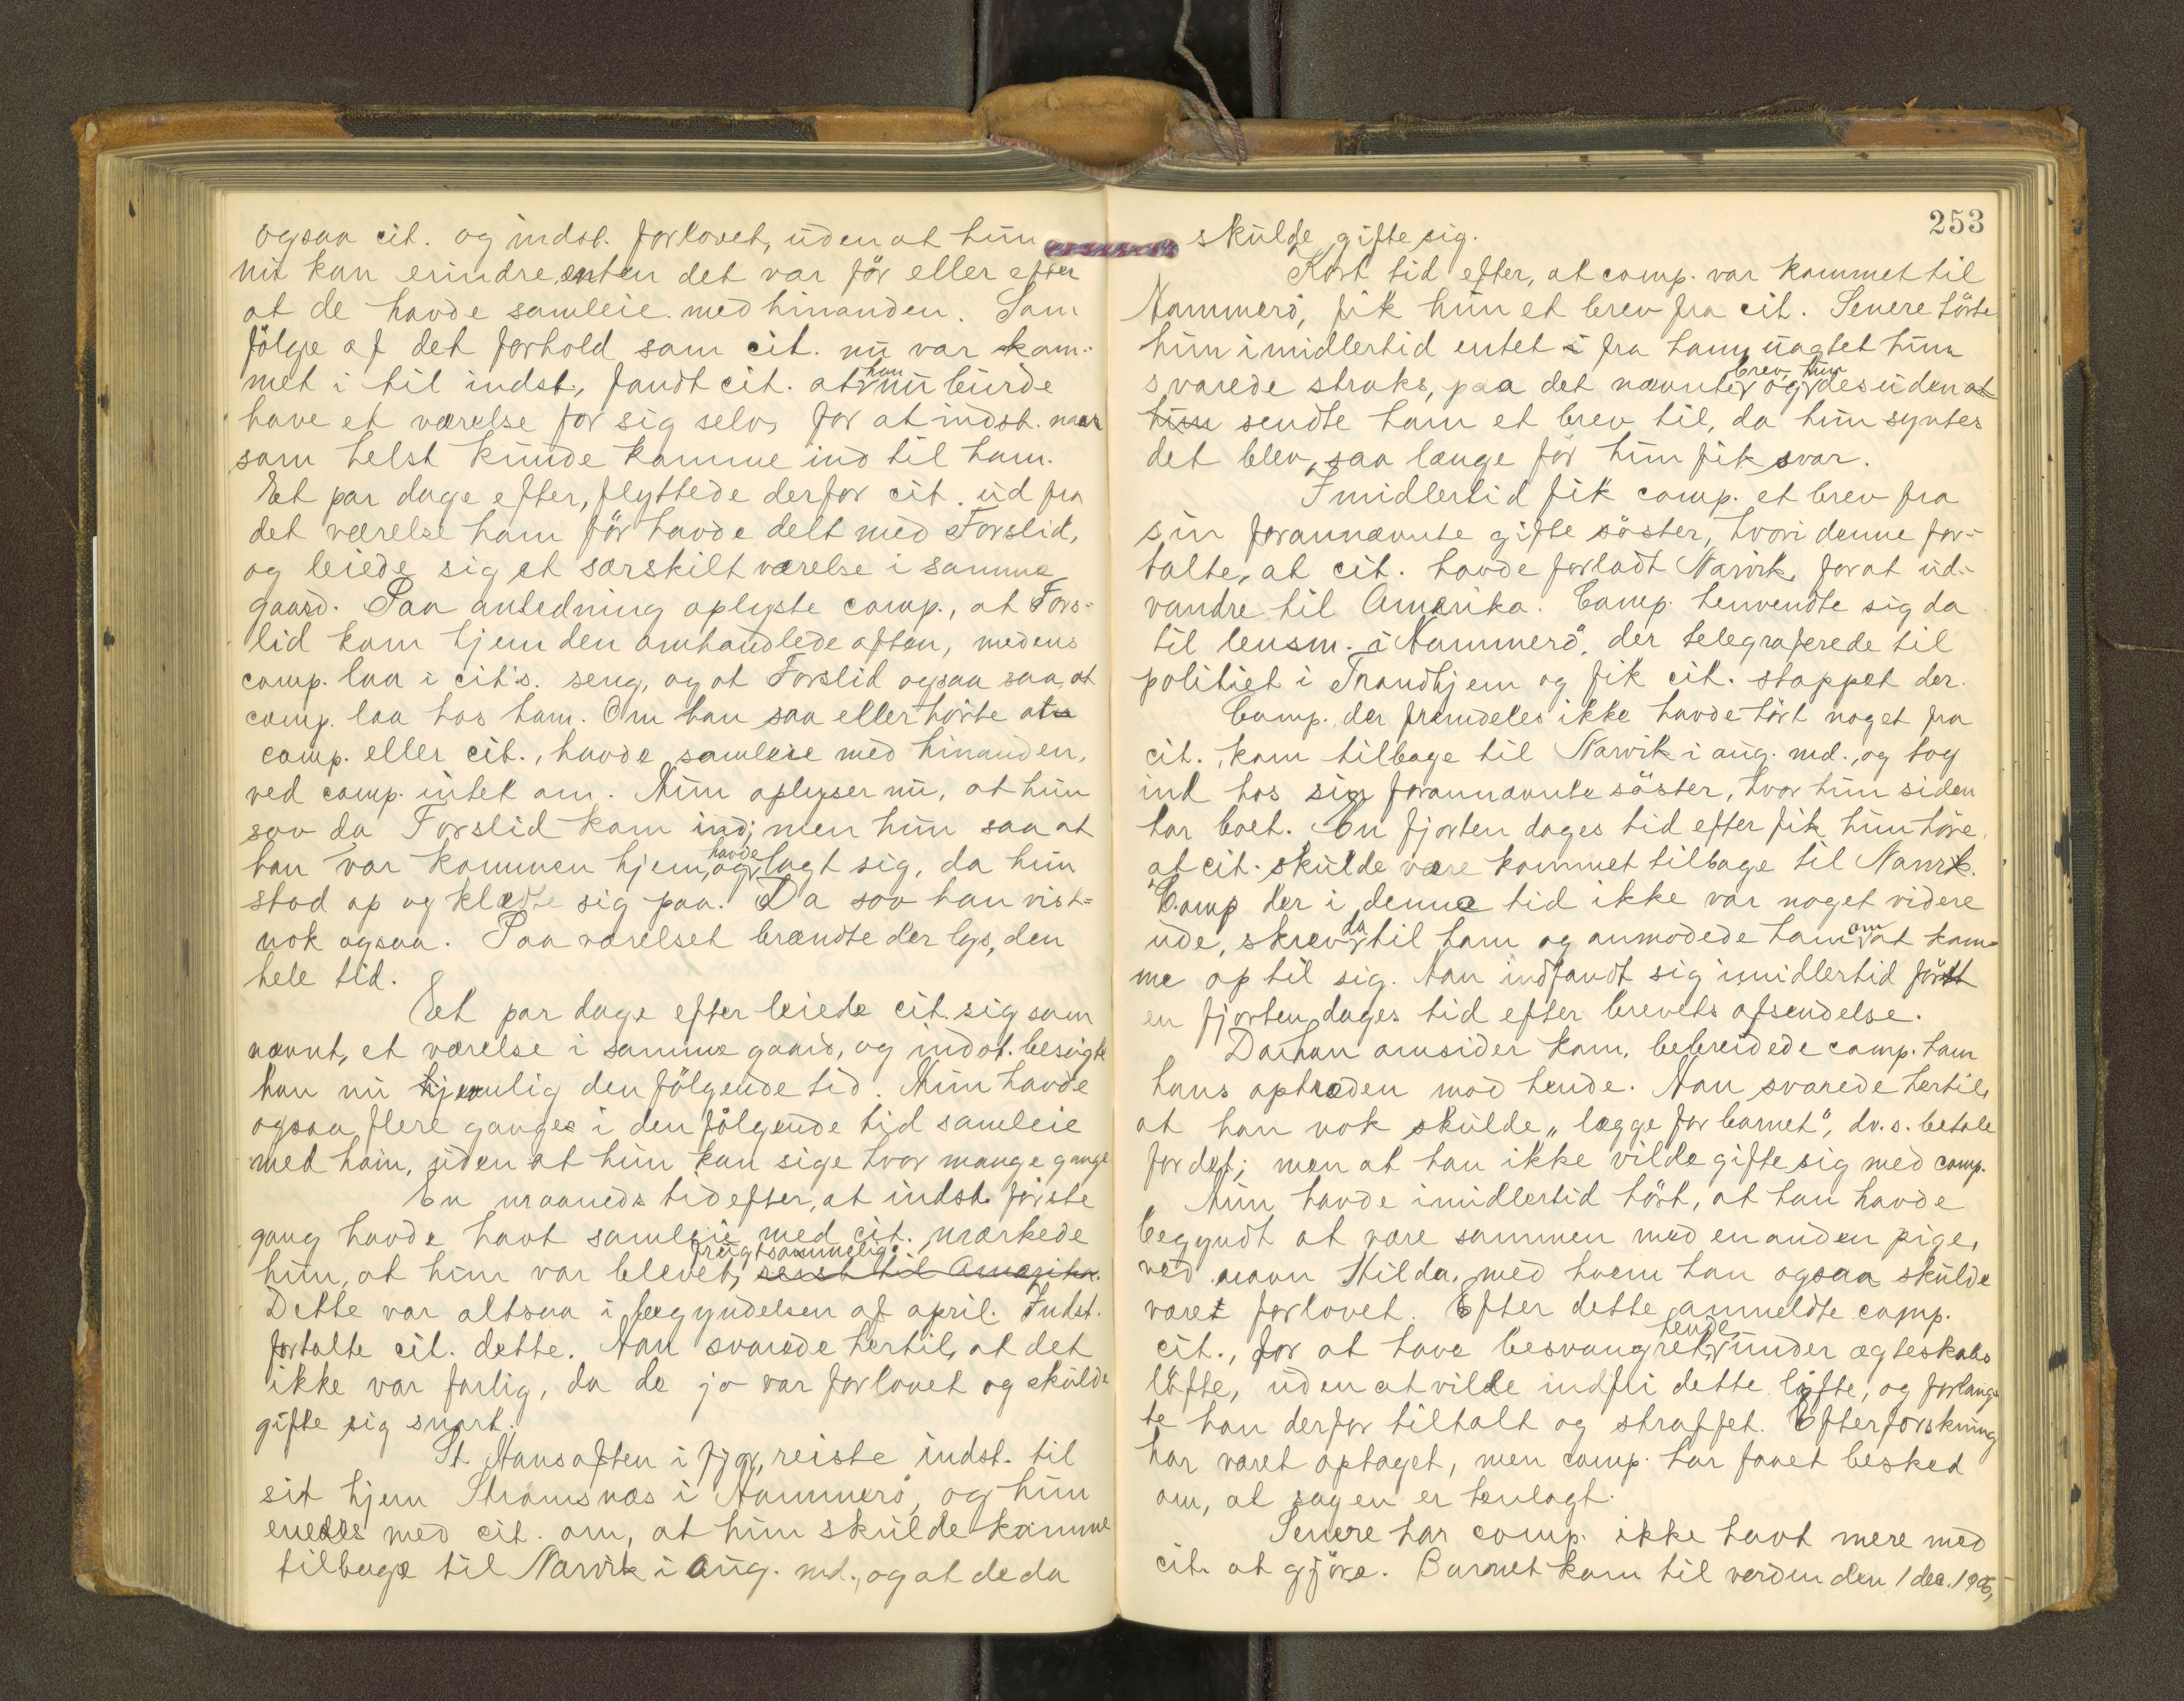 ogsaa cit. og indst. forlovet, uden at hun
nu kan erindre, enten det var för eller efter
at de havde samleie med hinanden. Som
fölge af det forhold som cit. nu var kom-
met i til indst., fandt cit. at han nu burde
have et værelse for sig selv, for at indst. naar
som helst kunde komme ind til ham.
Et par dage efter, flyttede derfor cit. ud fra
det værelse ham för havde delt med Forslid,
og leiede sig et særskilt værelse i samme
gaard. Paa anledning oplyste comp., at Fors-
lid kom hjem den omhandlede aften, medens
comp. laa i cit's. seng, og at Forslid ogsaa saa, at
comp. laa hos ham. Om han saa eller hörte at
comp. eller cit., havde samleie med hinanden,
ved comp. intet om. Hun oplyser nu, at hun
sov da Forslid kom ind; men hun saa at
han var kommen hjem, og havde lagt sig, da hun
stod op og klædte sig paa. Da sov han vist-
nok ogsaa. Paa værelset brændte der lys, den
hele tid.
Et par dage efter leiede cit. sig som
nævnt, et værelse i samme gaard, og indst. besögte
han nu hjemlig den fölgende tid. Hun havde
ogsaa flere ganges i den fölgende tid samleie
med ham, uden at hun kan sige hvor mange gange
En maaneds tid efter, at indst. förste
gang havde havt samleie med cit. mærkede
hun, at hun var blevet frugtsommelig. reist til Amerika.
Dette var altsaa i begyndelsen af april. Indst.
fortalte cit. dette. Han svarede hertil, at det
ikke var farlig, da de jo var forlovet og skulde
gifte sig snart.
St. Hansaften i fjor, reiste indst. til
sit hjem Strømsnæs i Hammerö, og hun
enedes med cit. om, at hun skulde komme
tilbage til Narvik i Aug. md., og at de da
253
skulde gifte sig.
Kort tid efter, at comp. var kommet til
Hammerö, fik hun et brev fra cit. Senere hörte
hun imidlertid intet i fra ham, uagtet hun
svarede straks, paa det nævnte brev, og hun desuden at
hun sendte ham et brev til, da hun syntes
det blev saa længe för hun fik svar.
Imidlertid fik comp. et brev fra
sin forannævnte gifte söster, hvori denne for-
talte, at cit. havde forladt Narvik, for at ud-
vandre til Amerika. Comp. henvendte sig da
til lensm. i Hammerö, der telegraferede til
politiet i Trondhjem og fik cit. stoppet der.
Comp. der fremdeles ikke havde hört noget fra
cit., kom tilbage til Narvik i aug. md., og tog
ind hos sin forannævnte söster, hvor hun siden
har boet. En fjorten dages tid efter fik hun höre,
at cit. skulde være kommet tilbage til Narvik.
Comp der i denne tid ikke var noget videre
ude, skrev da til ham og anmodede ham om at kom-
me op til sig. Han indfandt sig imidlertid först
en fjorten dages tid efter brevets afsendelse.
Da han omsider kom, bebreidede comp. ham
hans optræden mod hende. Han svarede hertil,
at han nok skulde „lægge for barnet", dv.s. betale
for det; men at han ikke vilde gifte sig med comp.
Hun havde imidlertid hört, at han havde
begyndt at være sammen med en anden pige,
ved navn Hilda, med hvem han ogsaa skulde
været forlovet. Efter dette anmeldte comp.
cit., for at have besvangret hende, under ægteskabs
löfte, uden at vilde indfri dette löfte, og forlang-
te han derfor tiltalt og straffet. Efterforskning
har været optaget, men comp. har faaet besked
om, at sagen er henlagt.
Senere har comp. ikke havt mere med
cit. at gjöre. Barnet kom til verden den 1 dec. 1906,